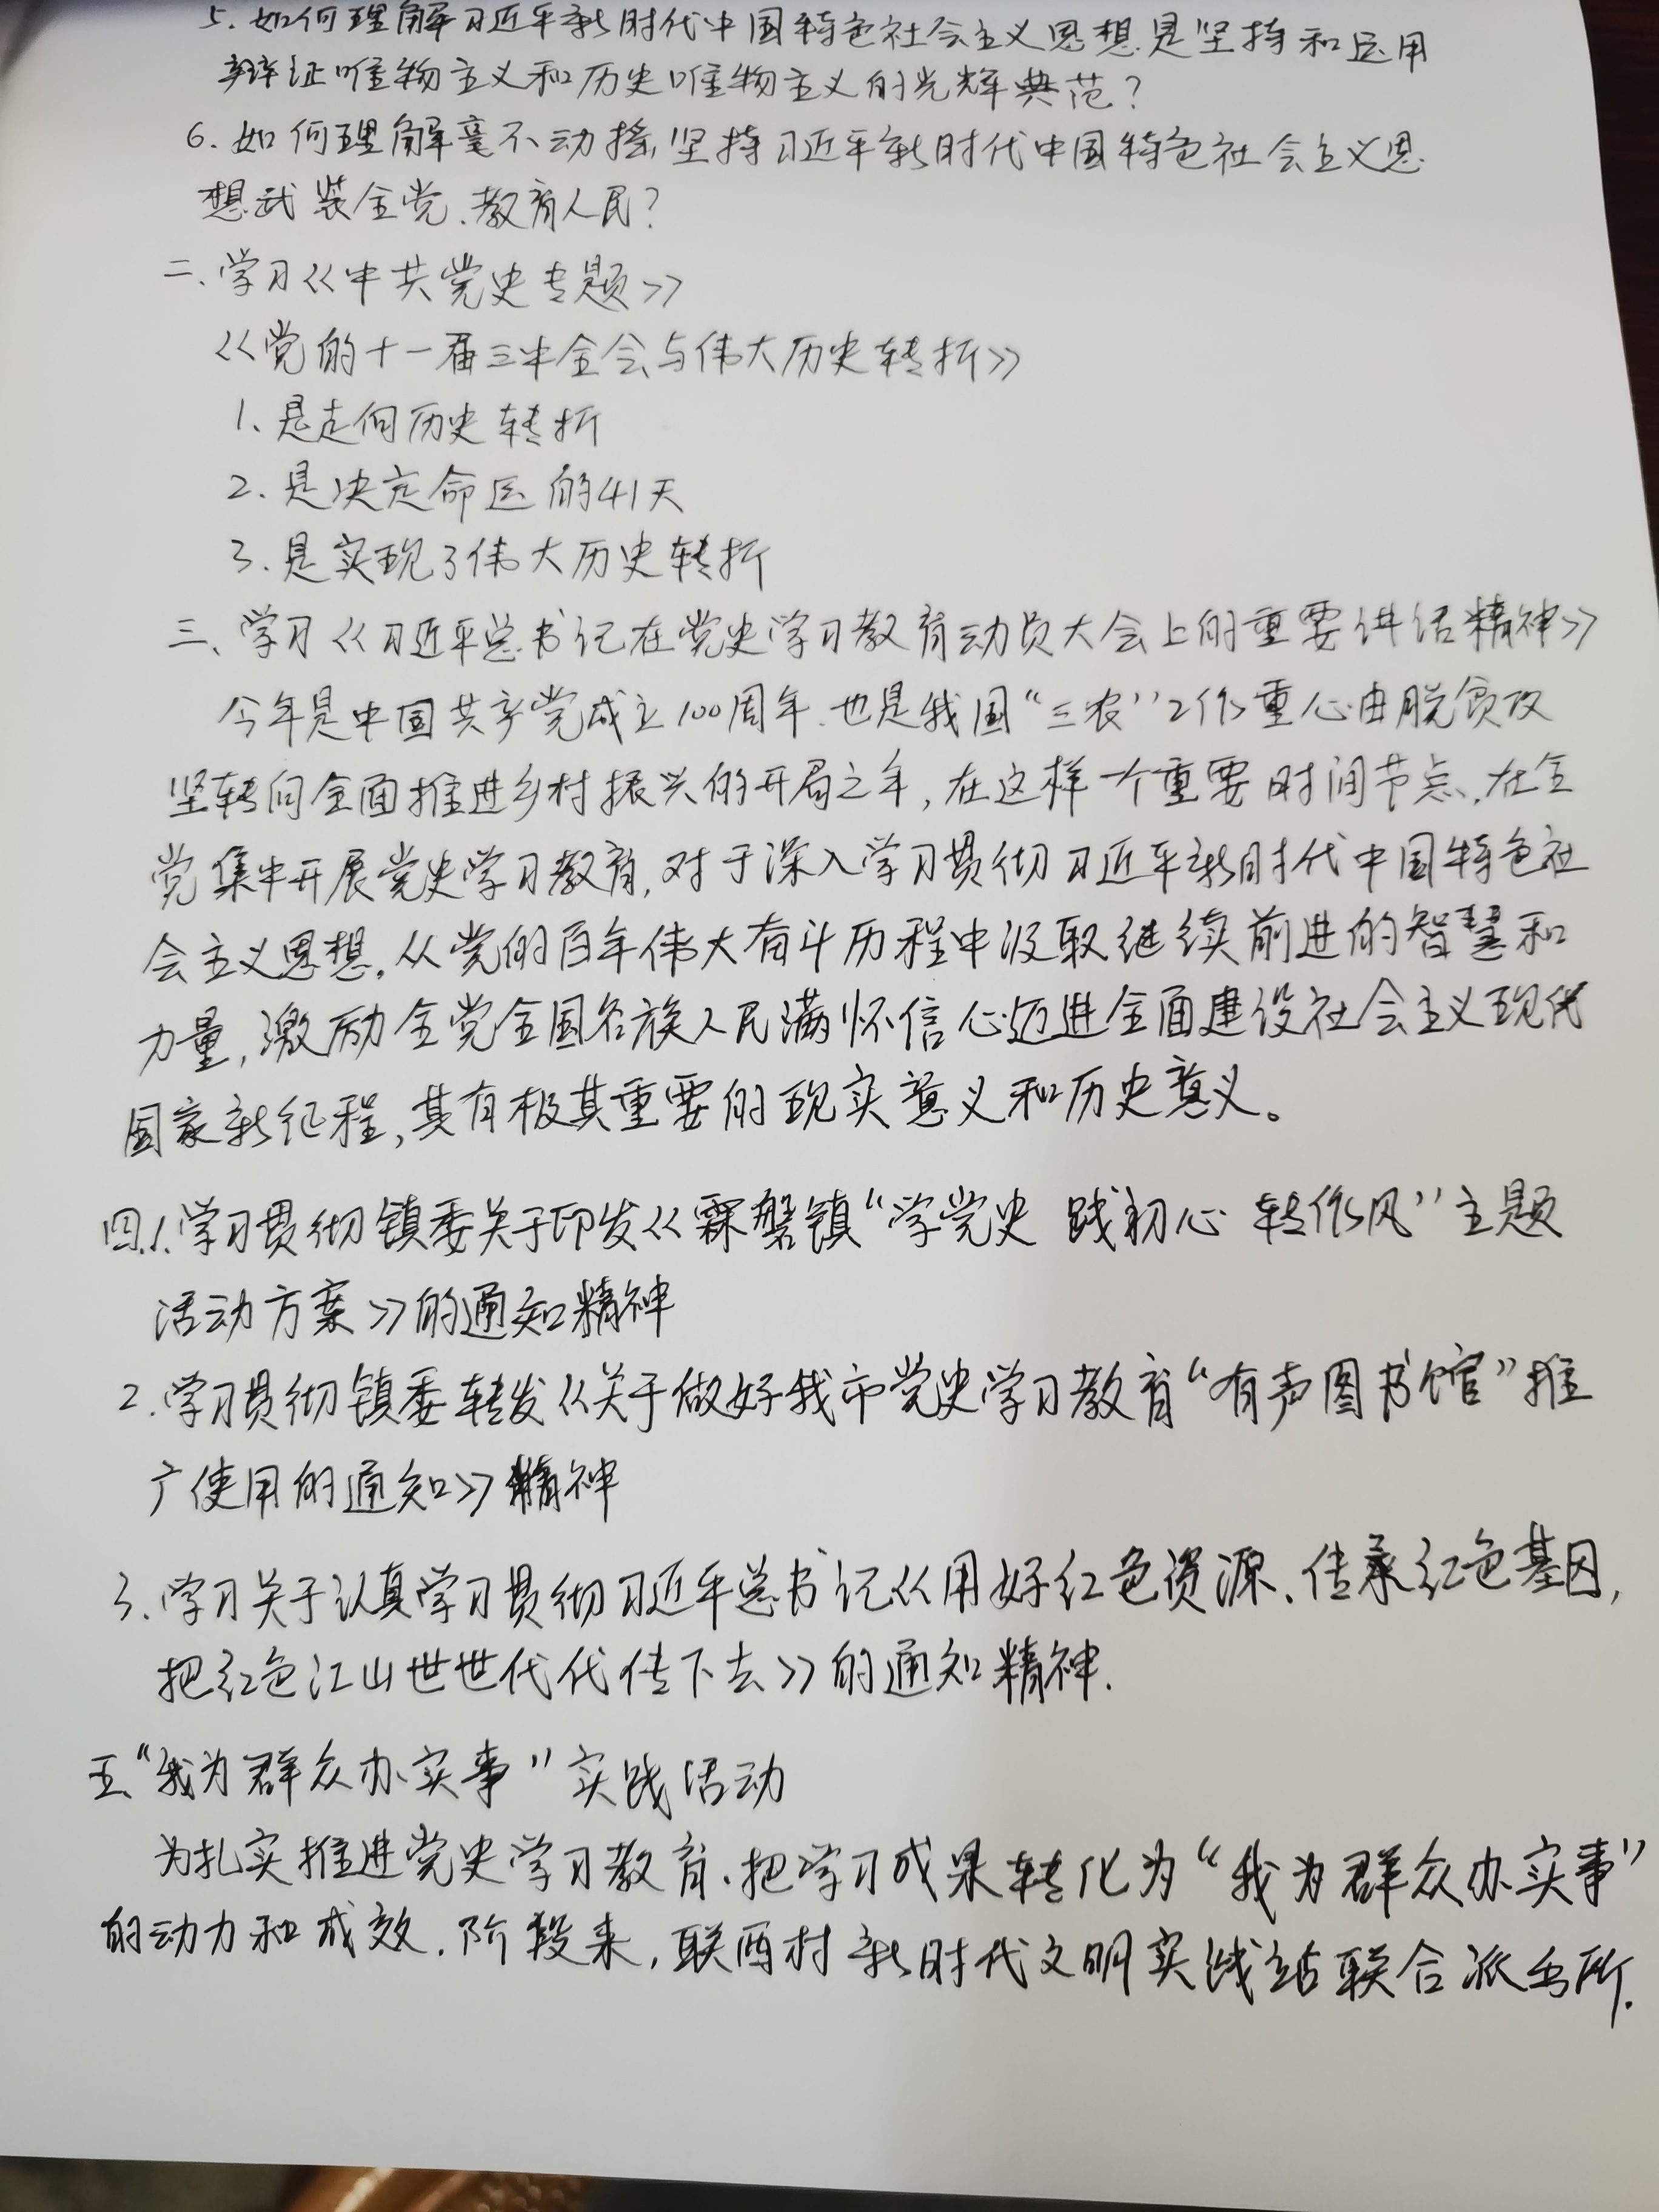 5. 如何理解习近平新时代中国特色社会主义思想是坚持和运用
辩证唯物主义和历史唯物主义的光辉典范?
6. 如何理解毫不动摇坚持习近平新时代中国特色社会主义思
想武装全党、教育人民?
二、学习《中共党史专题》
《党的十一届三中全会与伟大历史转折》
1、是走向历史转折
2、是决定命运的41天
3、是实现了伟大历史转折
三、学习《习近平总书记在党史学习教育动员大会上的重要讲话精神》
今年是中国共产党成立100周年、也是我国“三农”工作重心由脱贫攻
坚转向全面推进乡村振兴的开局之年,在这样一个重要时间节点,在全
党集中开展党史学习教育,对于深入学习贯彻习近平新时代中国特色社
会主义思想,从党的百年伟大奋斗历程中汲取继续前进的智慧和
力量,激励全党全国各族人民满怀信心迈进全面建设社会主义现代
国家新征程,其有极其重要的现实意义和历史意义。
四、1、学习贯彻镇委关于印发《霖磐镇“学党史 践初心 转作风”主题
活动方案》的通知精神
2.学习贯彻镇委转发《关于做好我市党史学习教育“有声图书馆”推
广使用的通知》精神
3、学习关于认真学习贯彻习近平总书记《用好红色资源、传承红色基因,
把红色江山世世代代传下去》的通知精神.
五、“我为群众办实事”实践活动
为扎实推进党史学习教育、把学习成果转化为“我为群众办实事”
的动力和成效.阶段来,联西村新时代文明实践站联合派出所、